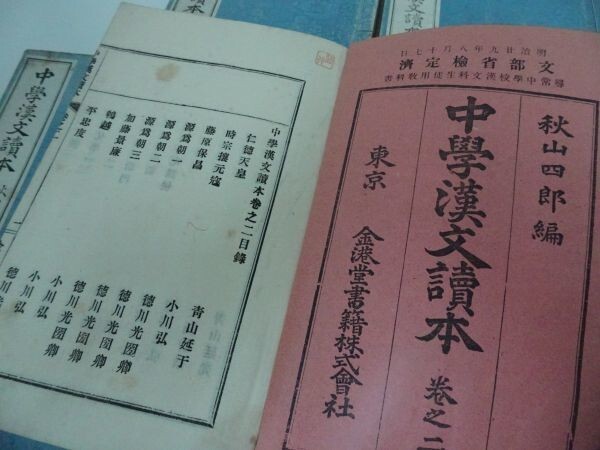 明治廿九年八月十七日
文部省檢定濟
尋常中學校漢文科生徒用教科書
秋山四郎編
中學漢文讀本 卷之二
東京 金港堂書籍株式會社
中學漢文讀本卷之二目錄
仁德天皇 青山延于
時宗攘元寇 小川弘
藤原保昌 德川光圀卿
源爲朝一 德川光圀卿
源爲朝二 德川光圀卿
源爲朝三 德川光圀卿
加藤景廉 小川弘
鵯越 小川弘
平忠度 德川光
中學漢文讀本